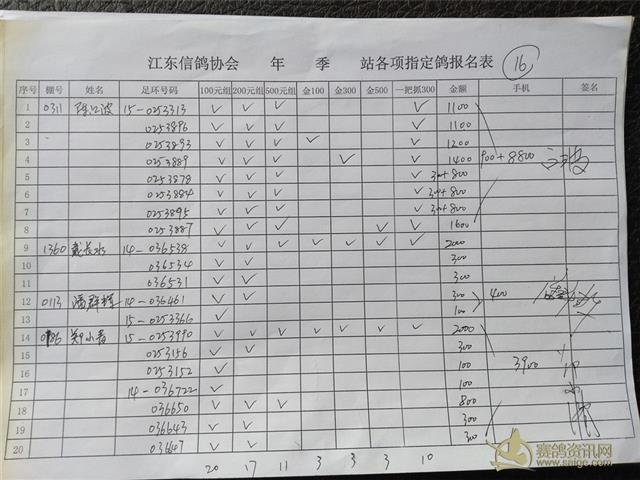 江东信鸽协会 年 季 站各项指定鸽报名表 16
序号 棚号 姓名 足环号码 100元组 200元组 500元组 金100 金300 金500 一把抓300 金额 手机 签名
1 0311 15-0253313 ✓ ✓ ✓ ✓ 1100
2 0253896 ✓ ✓ ✓ ✓ 1100
3 0253893 ✓ ✓ ✓ ✓ ✓ 1200
4 0253889 ✓ ✓ ✓ ✓ ✓ 1400 900+8800
5 0253878 ✓ ✓ ✓ ✓ 300+800
6 0253884 ✓ ✓ ✓ ✓ 300+800
7 0253895 ✓ ✓ ✓ ✓ 300+800
8 0253887 ✓ ✓ ✓ ✓ ✓ 1600
9 1360 戴长水 14-036538 ✓ ✓ ✓ ✓ ✓ ✓ ✓ 2000
10 036534 ✓ ✓ 300
11 036531 ✓ ✓ 300
12 0113 潘群辉 14-036461 ✓ ✓ 300 400
13 15-0253366 ✓ 100
14 0186 郑小春 15-0253990 ✓ ✓ ✓ ✓ ✓ ✓ ✓ 2000
15 0253156 ✓ ✓ 300
16 0253152 ✓ 100 3900
17 14-036722 ✓ 100
18 036650 ✓ ✓ ✓ 800
19 036643 ✓ ✓ 300
20 03647 ✓ ✓ 300
20 17 11 3 3 3 10
赛鸽资讯网
www.saige.com